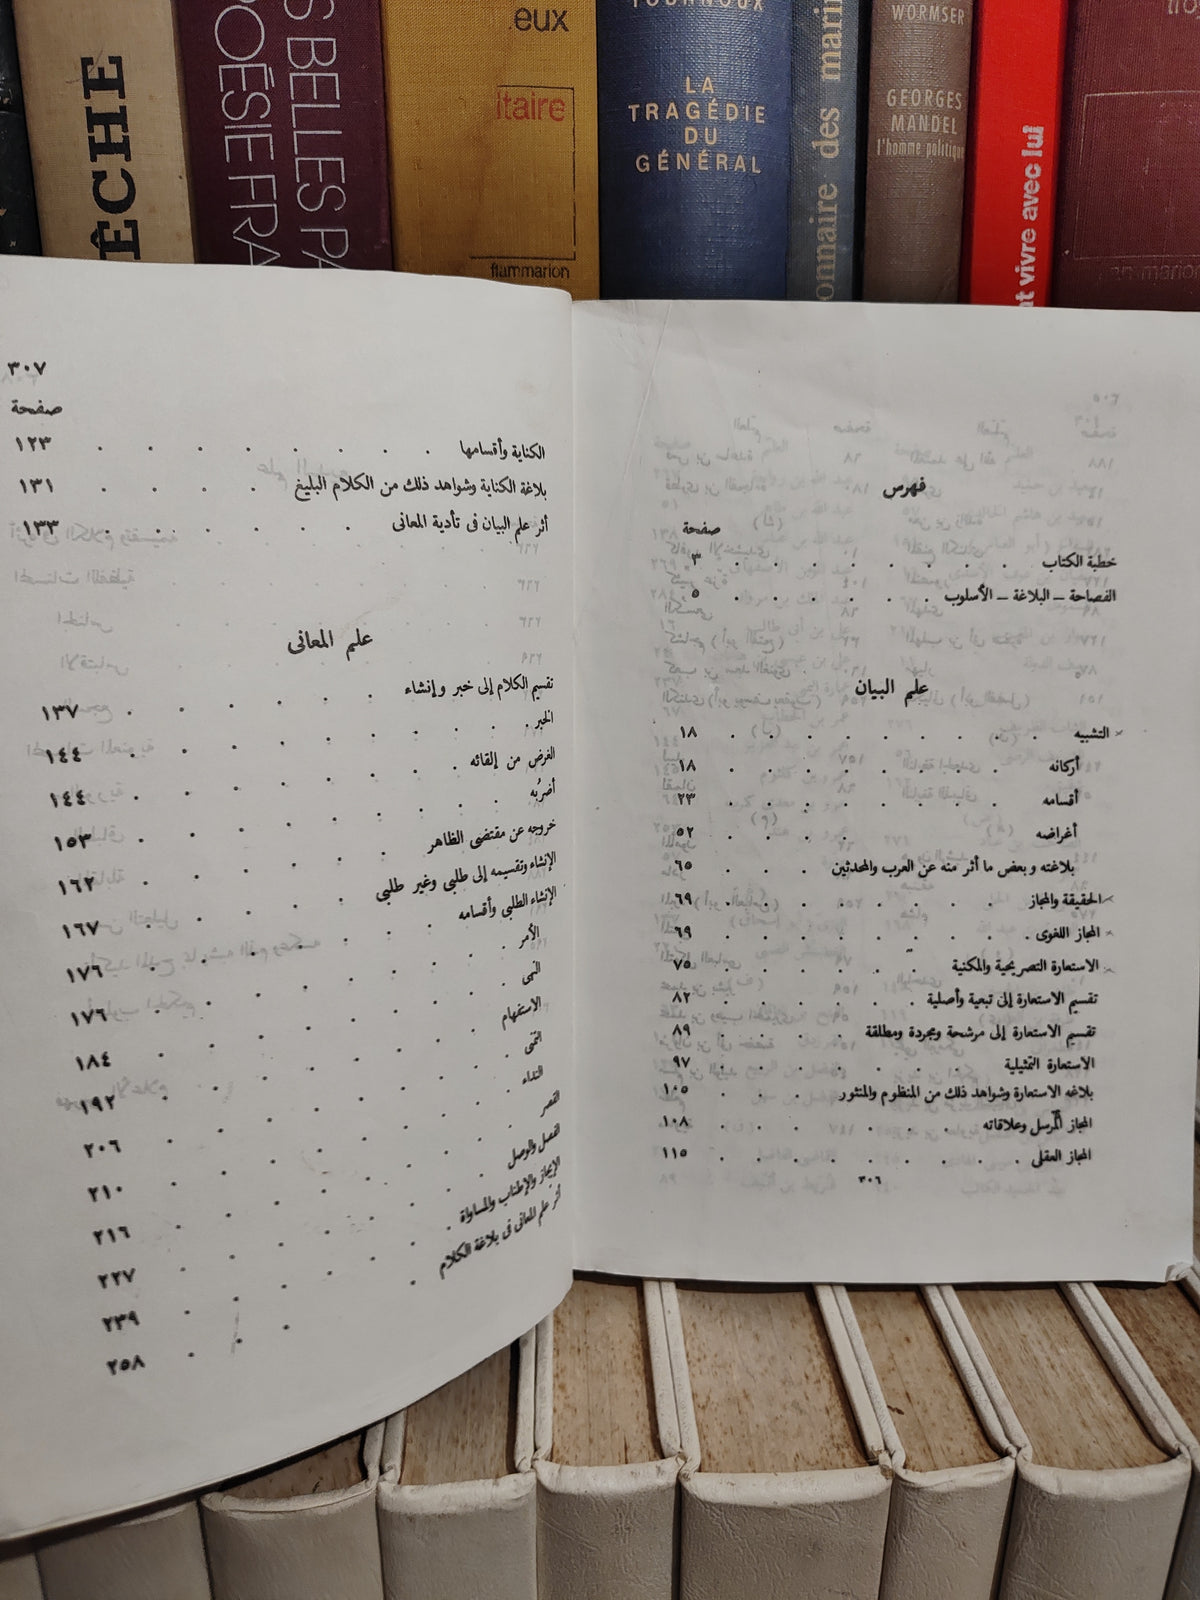 ÊCHE
S BELLES PA
POÉSIE FRA
eux
itaire
flammarion
TOURNOUX
LA
TRAGÉDIE
DU
GÉNÉRAL
onnaire des mari
WORMSER
GEORGES
MANDEL
l'homme politique
nt vivre avec lui
فهرس
صفحة
خطبة الكتاب . . . . . . . . ٣
الفصاحة – البلاغة – الأسلوب . . . . . ٥
علم البيان
التشبيه . . . . . . . . ١٨
أركانه . . . . . . . . ١٨
أقسامه . . . . . . . . ٢٣
أغراضه . . . . . . . . ٥٢
بلاغته و بعض ما أثر منه عن العرب والمحدثين . . . ٦٥
الحقيقة والمجاز . . . . . . . . ٦٩
المجاز اللغوى . . . . . . . . ٦٩
الاستعارة التصريحية والمكنية . . . . . ٧٥
تقسيم الاستعارة إلى تبعية وأصلية . . . . . ٨٢
تقسيم الاستعارة إلى مرشحة ومجردة ومطلقة . . . . ٨٩
الاستعارة التمثيلية . . . . . . . ٩٧
بلاغه الاستعارة وشواهد ذلك من المنظوم والمنثور . . . ١٠٥
المجاز المرسل وعلاقاته . . . . . . . ١٠٨
المجاز العقلى . . . . . . . . ١١٥
٣٠٦
٣٠٧
صفحة
الكناية وأقسامها . . . . . . . ١٢٣
بلاغة الكناية وشواهد ذلك من الكلام البليغ . . . . ١٣١
أثر علم البيان فى تأدية المعانى . . . . . ١٣٣
علم المعانى
تقسيم الكلام إلى خبر و إنشاء . . . . . . ١٣٧
الخبر . . . . . . . . ١٤٤
الغرض من إلقائه . . . . . . . ١٤٤
أضربُه . . . . . . . . ١٥٣
خروجه عن مقتضى الظاهر . . . . . . ١٦٢
الإنشاء وتقسيمه إلى طلبى وغير طلبى . . . . . ١٦٧
الإنشاء الطلبى وأقسامه . . . . . . ١٧٦
الأمر . . . . . . . . ١٧٦
النهى . . . . . . . . ١٨٤
الاستفهام . . . . . . . . ١٩٢
التمنى . . . . . . . . ٢٠٦
النداء . . . . . . . . ٢١٠
القصر . . . . . . . . ٢١٦
الفصل والوصل . . . . . . . ٢٢٧
الإيجاز والإطناب والمساواة . . . . . . ٢٣٩
أثر علم المعانى فى بلاغة الكلام . . . . . ٢٥٨